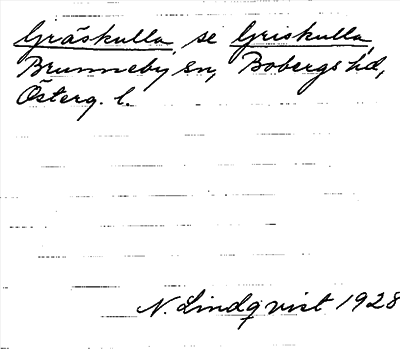 Gräskulla, se Griskulla,
Brunneby sn, Bobergs hd,
Österg. l.
N. Lindqvist 1928